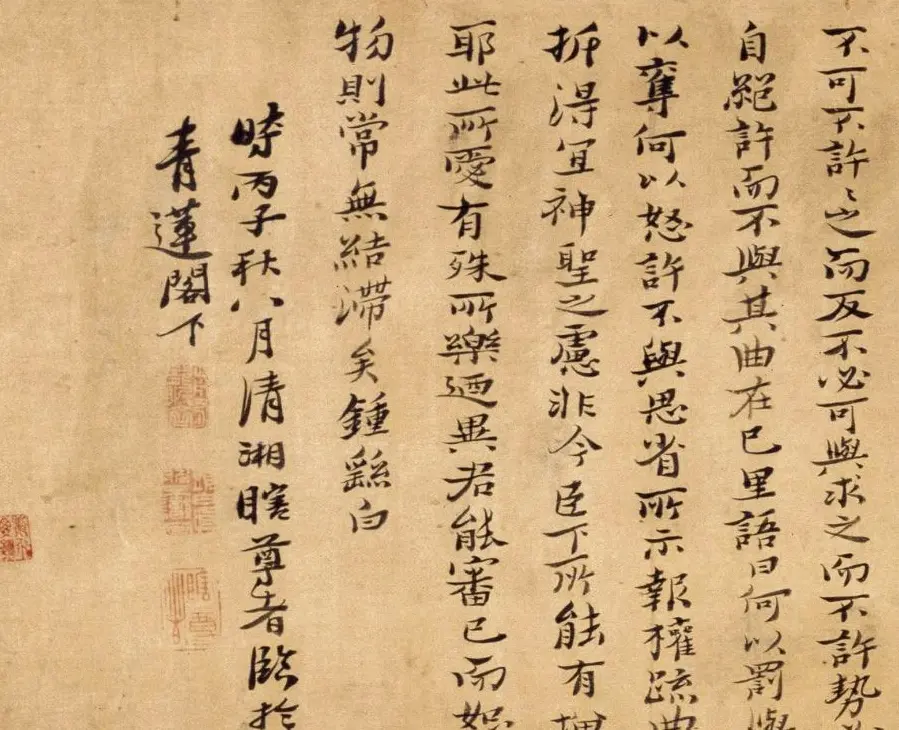 不可不許々之而反不必可與求之而不許勢
自絕許而不與其曲在已里語曰何以罰與
以奪何以怒許不與思省所示報權疏曲
折得宜神聖之慮非今臣下所能有增
耶此所愛有殊所樂迺異君能審已而恕
物則常無結滯矣鍾繇白
時丙子秋八月清湘瞎尊者臨於
青蓮閣下